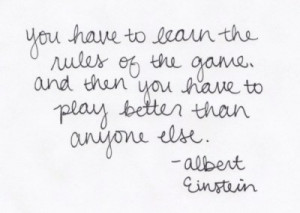 you have to learn the
rules of the game.
and then you have to
play better than
anyone else.
-albert
Einstein